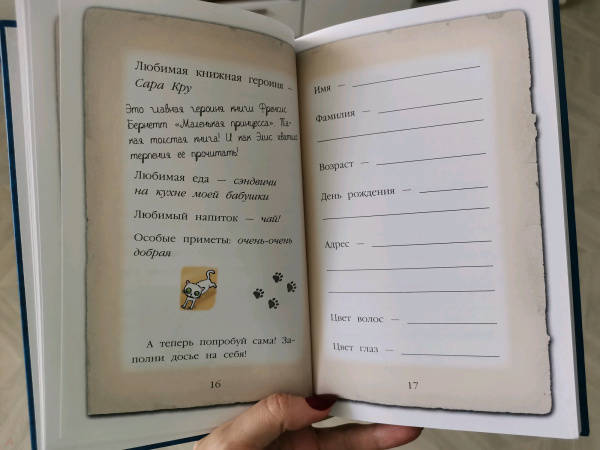 Любимая книжная героиня –
Сара Кру
Это главная героиня книги Фрэнсис
Бернетт «Маленькая принцесса». Та-
кая толстая книга! И как Элис хватило
терпения ее прочитать!
Любимая еда — сэндвичи
на кухне моей бабушки
Любимый напиток — чай!
Особые приметы: очень-очень
добрая
А теперь попробуй сама! За-
полни досье на себя!
16
Имя —
Фамилия —
Возраст —
День рождения —
Адрес —
Цвет волос —
Цвет глаз —
17